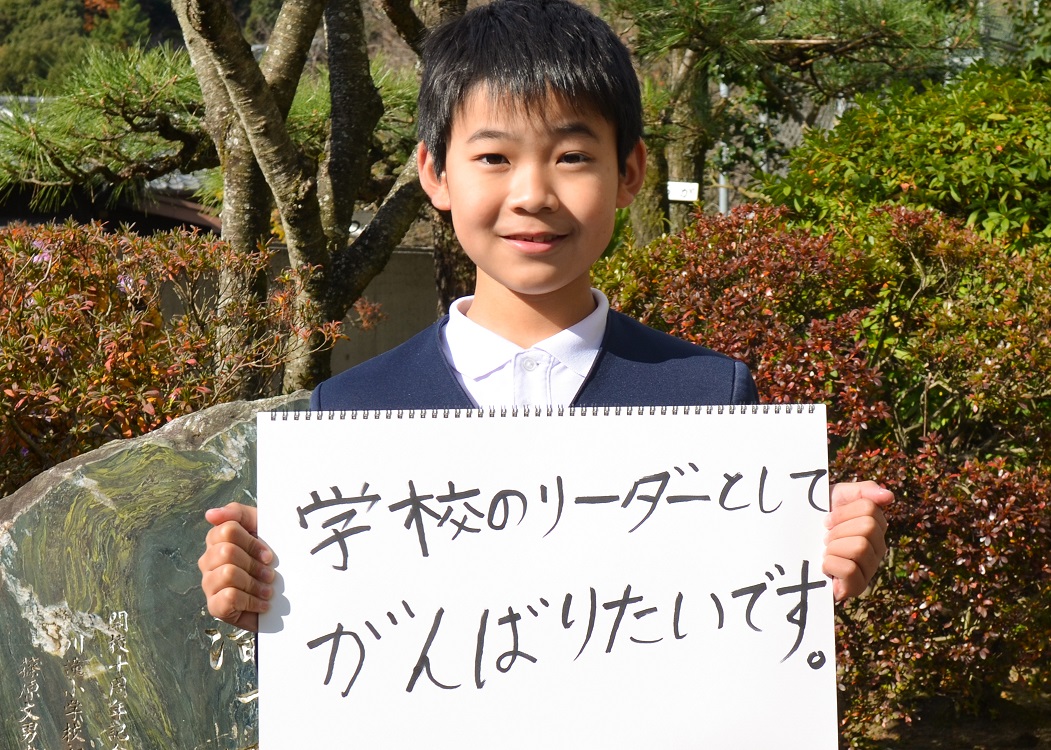 学校のリーダーとして
がんばりたいです。
開校十周年記
小学校